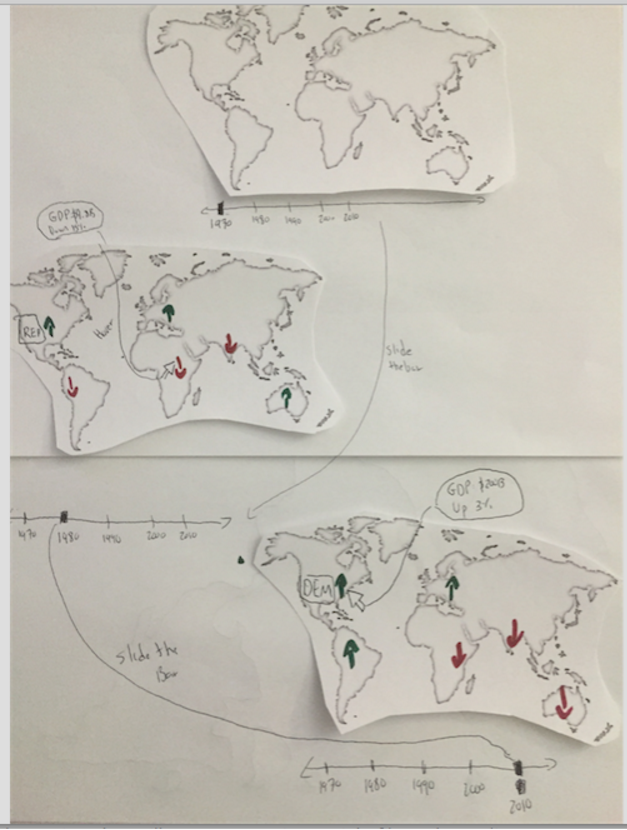 1970 1980 1990 2000 2010
Down 15%
REP
Hover
Slide
the bar
1970 1980 1990 2000 2010
GDP: $200B
Up 3%
DEM
Slide the
Bar
1970 1980 1990 2000
2010